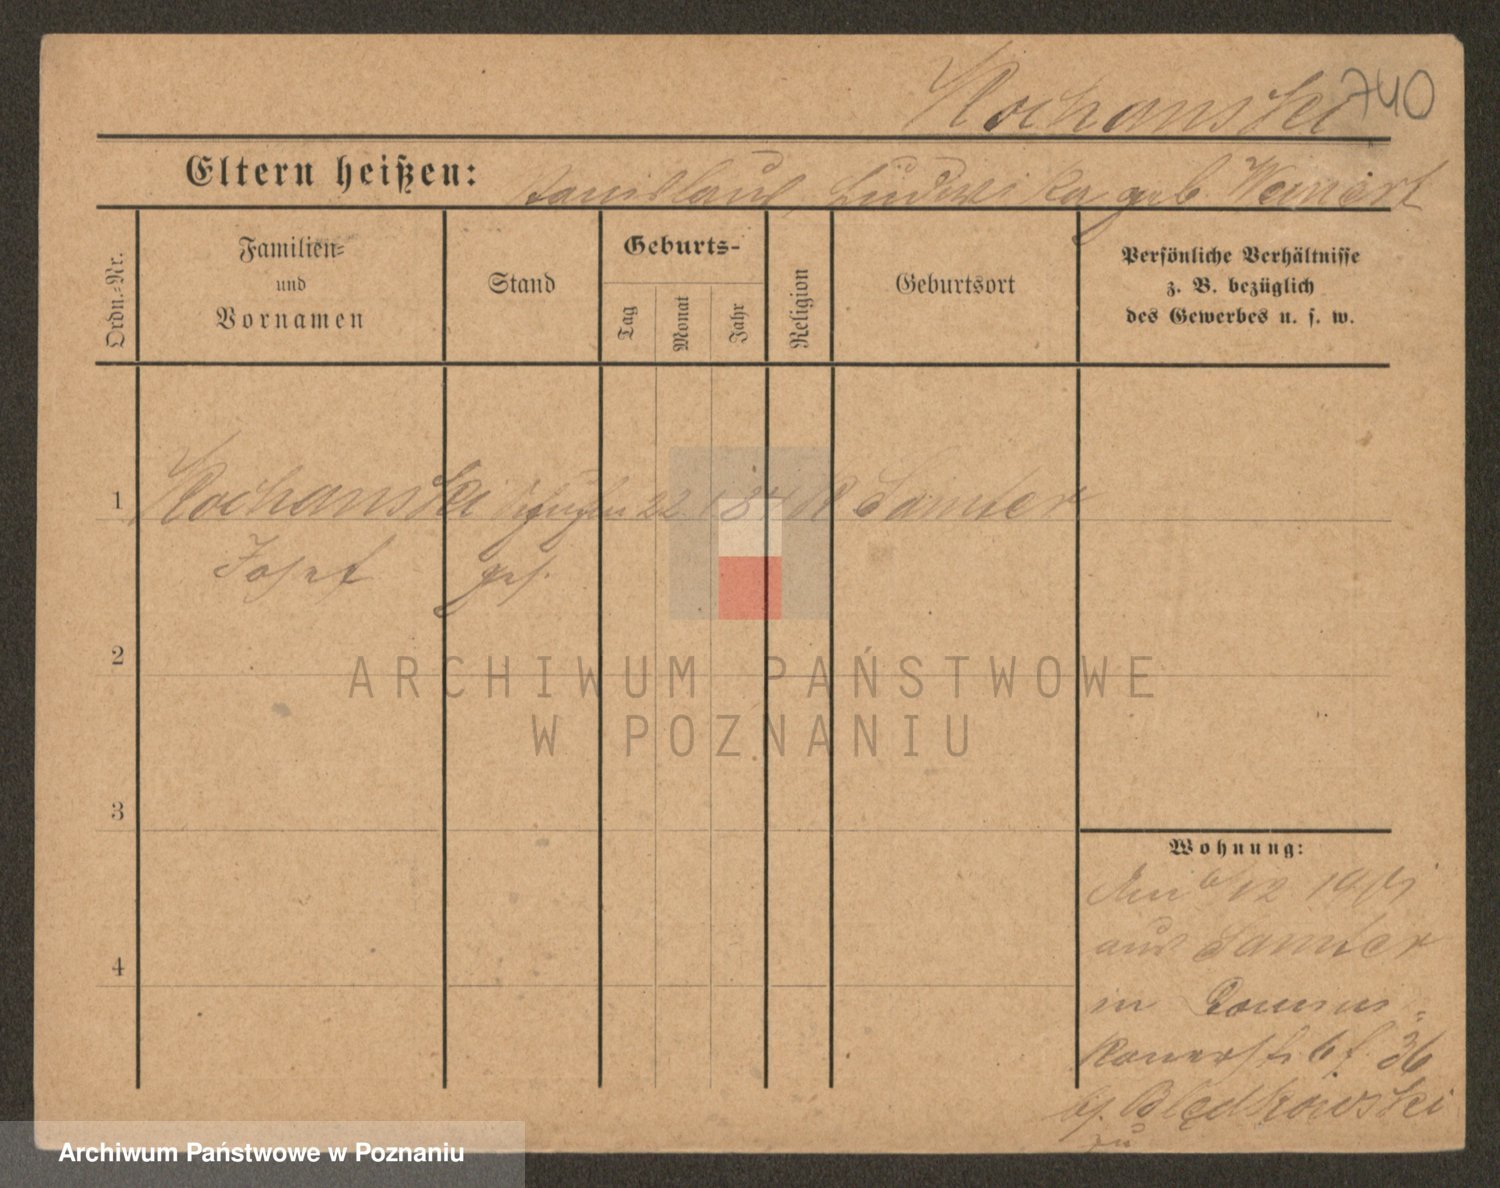 Kochanski
740
Eltern heißen: Stanislaus, Ludwika geb. Weinert
Ordn.-Nr.
Familien-
und
Vornamen
Stand
Geburts-
Tag
Monat
Jahr
Religion
Geburtsort
Persönliche Verhältnisse
z. B. bezüglich
des Gewerbes u. s. w.
1 Kochanski 22 Samter
Josef
2
3
4
Wohnung:
Am 6/12
aus Samter
in
36
bj. Blędkowski
zu
ARCHIWUM PAŃSTWOWE
W POZNANIU
Archiwum Państwowe w Poznaniu